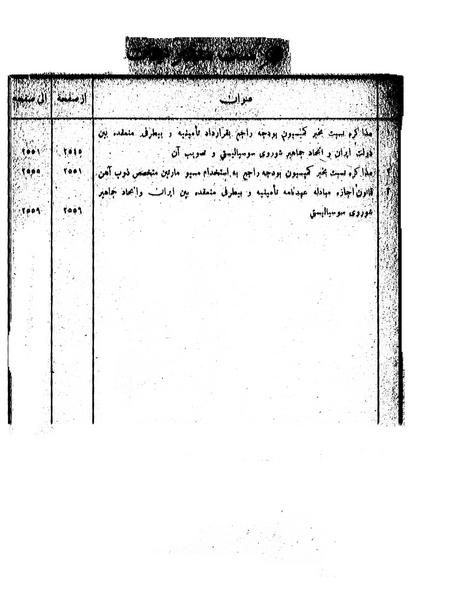 عنوان از صفحه الی صفحه
مذاکره نسبت بخبر کمیسیون بودجه راجع بقرارداد تأمینیه و بیطرفی منعقده بین
دولت ایران و اتحاد جماهیر شوروی سوسیالیستی و تصویب آن ۲۵٤٥ ۲۵۵۱
مذاکره نسبت بخبر کمیسیون بودجه راجع به استخدام مسیو مارتین متخصص ذوب آهن ۲۵۵۱ ۲۵۵۵
قانون اجازه مبادله عهدنامه تأمینیه و بیطرفی منعقده بین ایران و اتحاد جماهیر
شوروی سوسیالیستی ۲۵۵٦ ۲۵۵۹